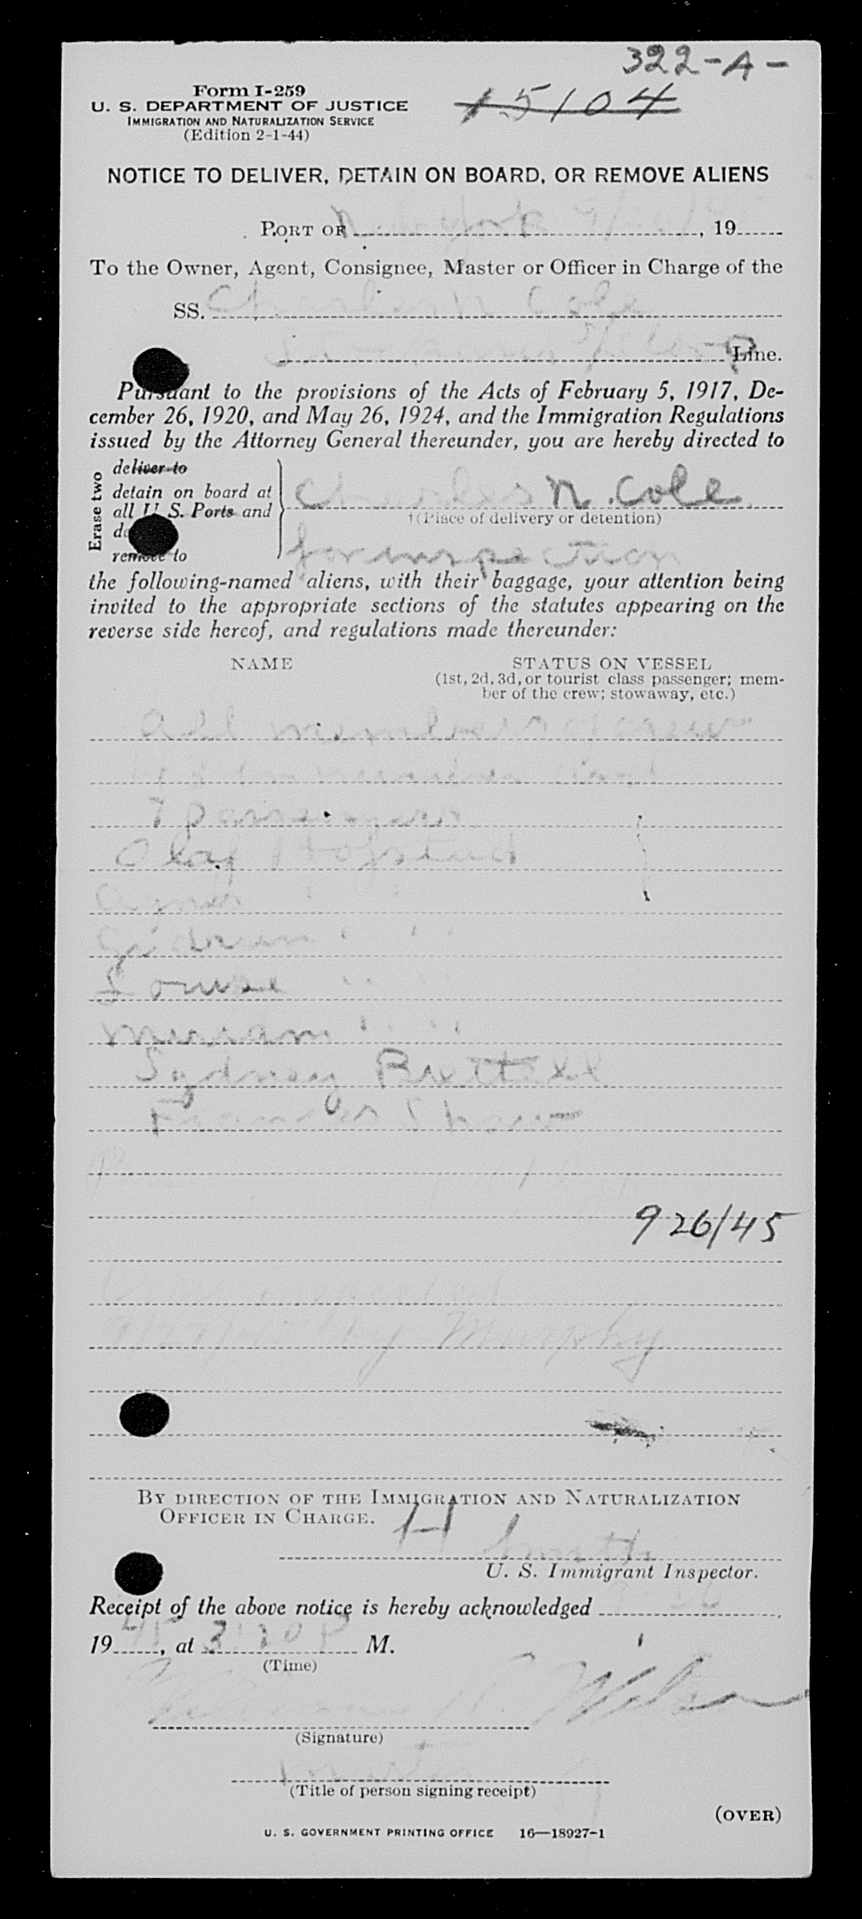 322-A-
15104
Form I-259
U. S. DEPARTMENT OF JUSTICE
IMMIGRATION AND NATURALIZATION SERVICE
(Edition 2-1-44)
NOTICE TO DELIVER, DETAIN ON BOARD, OR REMOVE ALIENS
PORT OF New York, 19
To the Owner, Agent, Consignee, Master or Officer in Charge of the
SS. Charles N Cole
Line.
Pursuant to the provisions of the Acts of February 5, 1917, De-
cember 26, 1920, and May 26, 1924, and the Immigration Regulations
issued by the Attorney General thereunder, you are hereby directed to
Erase two
deliver to
detain on board at
all U. S. Ports and
remove to
Charles N. Cole
†(Place of delivery or detention)
for inspection
the following-named aliens, with their baggage, your attention being
invited to the appropriate sections of the statutes appearing on the
reverse side hereof, and regulations made thereunder:
NAME
STATUS ON VESSEL
(1st, 2d, 3d, or tourist class passenger; mem-
ber of the crew; stowaway, etc.)
All members of crew
7 passengers
Olaf Hofstad
Agnes " "
Gudrun " "
Louise " "
Miriam " "
Sydney Brettell
Frances Shaw
926/45
by Murphy
BY DIRECTION OF THE IMMIGRATION AND NATURALIZATION
OFFICER IN CHARGE.
H Smith
U. S. Immigrant Inspector.
Receipt of the above notice is hereby acknowledged 9 26
1945, at 3:30 P M.
(Time)
William Wilson
(Signature)
(Title of person signing receipt)
(OVER)
U. S. GOVERNMENT PRINTING OFFICE 16—18927-1